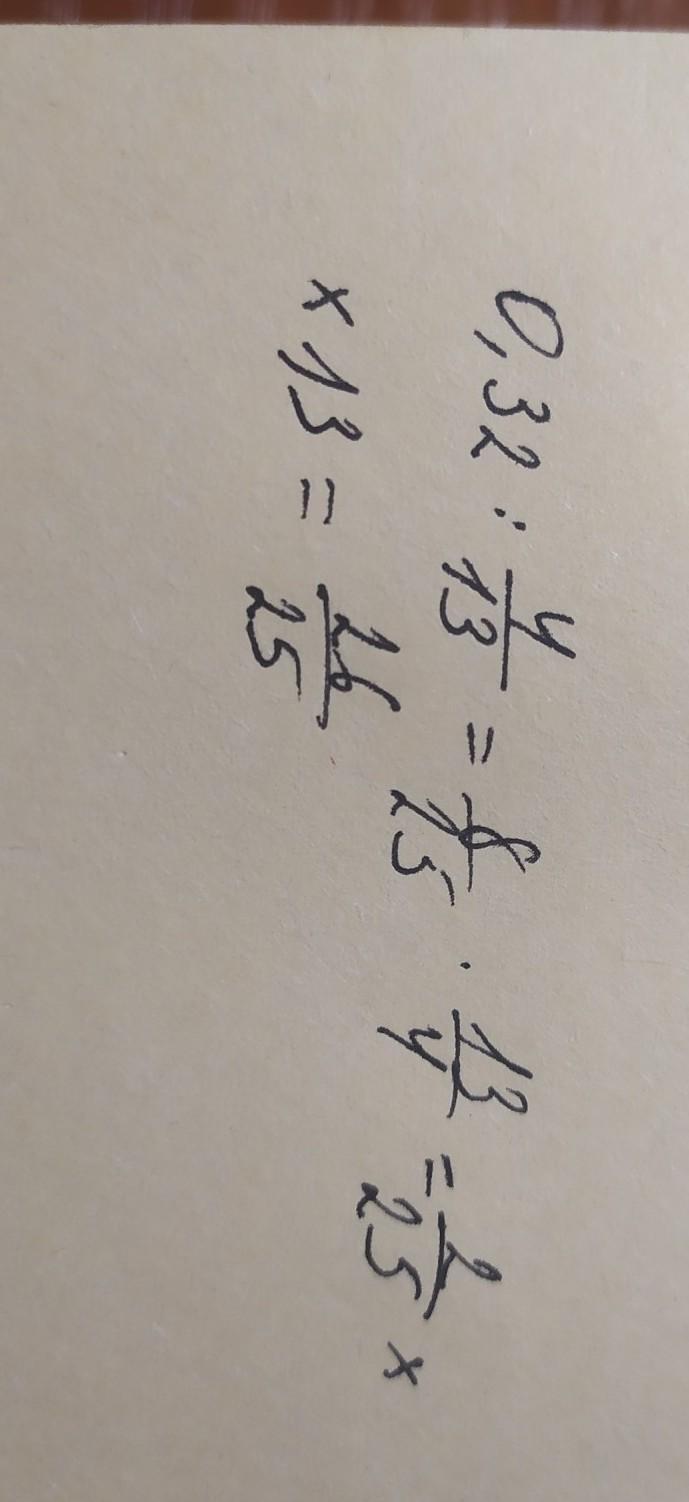 0,32 : 4/13 = 8/25 · 13/4 = 2/25 ×
× 13 = 26/25